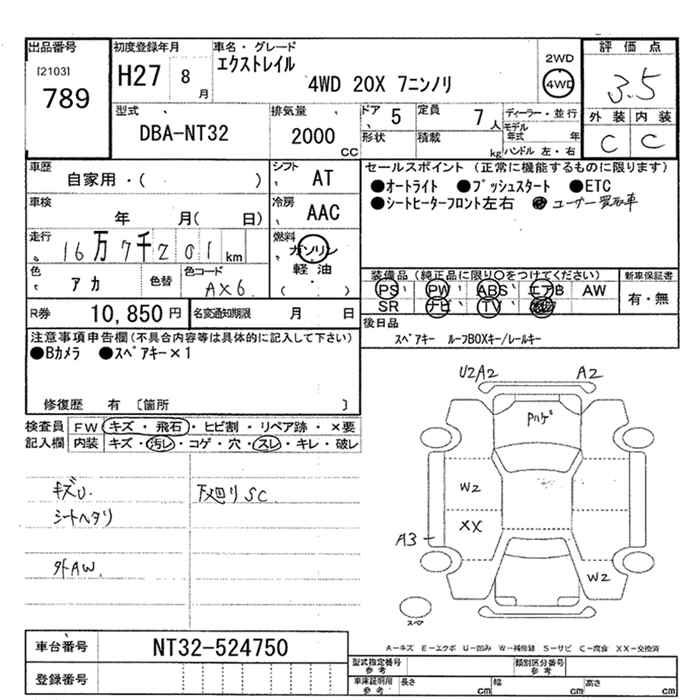 出品番号
[2103]
789
初度登録年月
H27 8月
車名・グレード
エクストレイル
4WD 20X 7ニンノリ
2WD
4WD
評価点
3.5
外装 内装
C C
型式
DBA-NT32
排気量
2000 CC
ドア 5
定員 7人
形状
積載 kg
ディーラー・並行
モデル年式 年
ハンドル 左・右
車歴
自家用・( )
シフト AT
車検
年 月( 日)
冷房 AAC
走行
16万7千201km
燃料
ガソリン
軽油
( )
色
アカ
色替
色コード
AX6
R券 10,850円
名変通知期限 月 日
セールスポイント(正常に機能するものに限ります)
●オートライト ●プッシュスタート ●ETC
●シートヒーターフロント左右 ユーザー買取車
装備品(純正品に限り○をつけてください)
PS PW ABS エアB AW
SR ナビ TV
新車保証書
有・無
後日品
スペアキー ルーフBOXキー/レールキー
注意事項申告欄(不具合内容等は具体的に記入して下さい)
●Bカメラ ●スペアキー×1
修復歴 有 [箇所 ]
検査員記入欄
FW キズ・飛石・ヒビ割・リペア跡・×要
内装 キズ・汚レ・コゲ・穴・スレ・キレ・破レ
キズU.
シートヘタリ
外AW.
下廻りSC
U2A2
A2
W2
XX
A3
W2
スペア
A-キズ E-エクボ U-凹み W-補修跡 S-サビ C-腐食 XX-交換済
車台番号 NT32-524750
登録番号
型式指定番号 参考
類別区分番号 参考
車庫証明用 参考
長さ cm
幅 cm
高さ cm